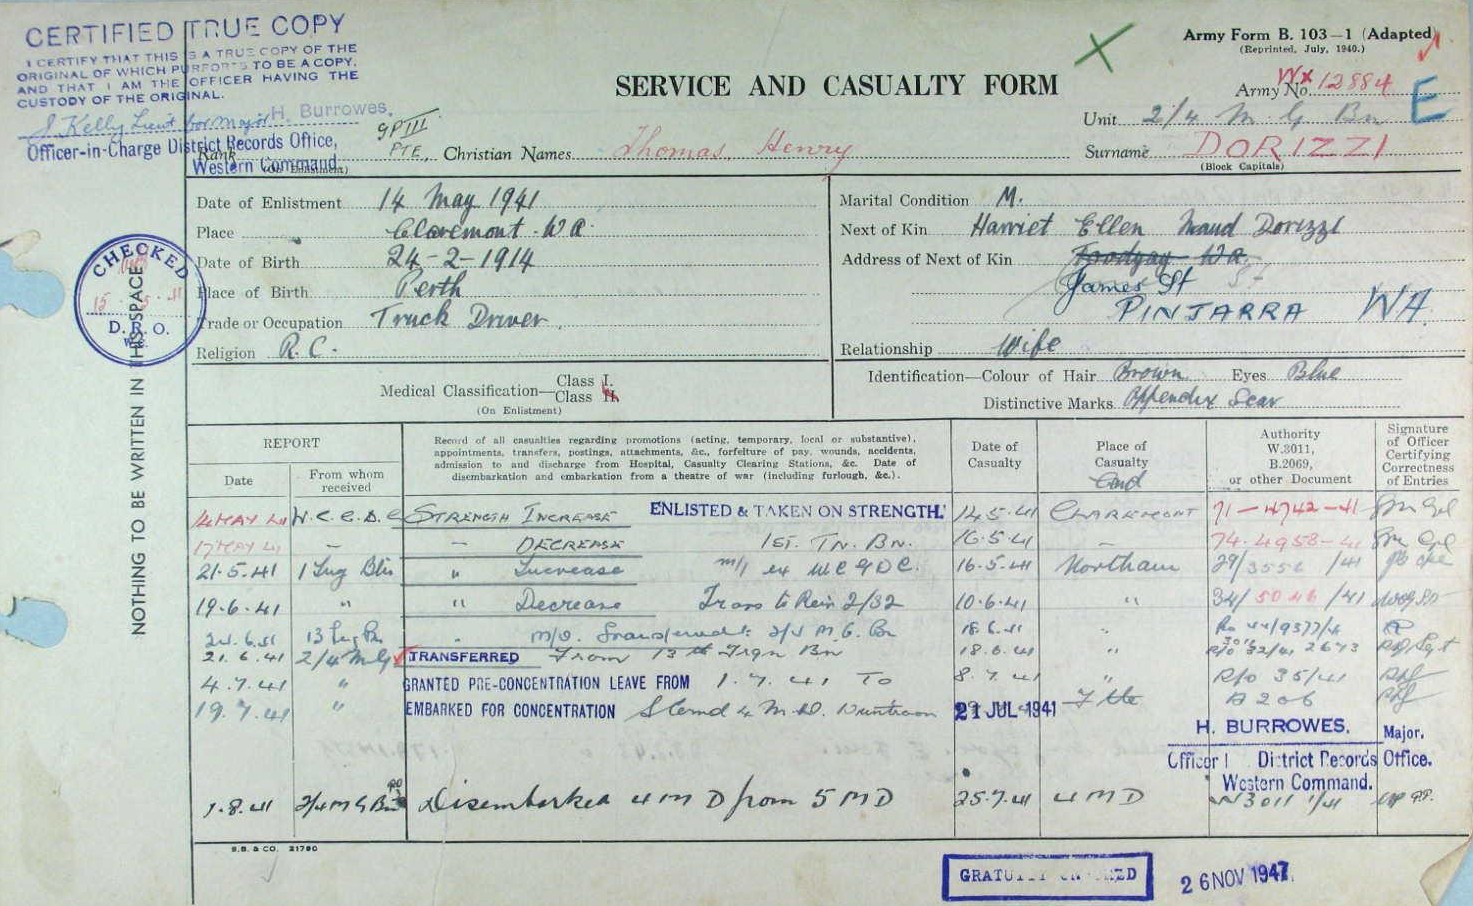 CERTIFIED TRUE COPY
I CERTIFY THAT THIS IS A TRUE COPY OF THE
ORIGINAL OF WHICH PURPORTS TO BE A COPY,
AND THAT I AM THE OFFICER HAVING THE
CUSTODY OF THE ORIGINAL.
J Kelly Lieut for Major H. Burrowes,
Officer-in-Charge District Records Office,
Western Command.
Army Form B. 103—1 (Adapted)
(Reprinted, July, 1940.)
SERVICE AND CASUALTY FORM
Army No. WX 12884
E
Unit 2/4 M G Bn
Rank GP III PTE,
(On Enlistment)
Christian Names Thomas Henry
Surname DORIZZI
(Block Capitals)
Date of Enlistment 14 May 1941
Place Claremont W A
Date of Birth 24-2-1914
Place of Birth Perth
Trade or Occupation Truck Driver
Religion R.C.
Marital Condition M.
Next of Kin Harriet Ellen Maud Dorizzi
Address of Next of Kin Toodyay W A
James St
PINJARRA WA.
Relationship Wife
Medical Classification— Class I.
Class II.
(On Enlistment)
Identification—Colour of Hair Brown Eyes Blue
Distinctive Marks Appendix Scar
CHECKED
D.R.O.
NOTHING TO BE WRITTEN IN THIS SPACE
REPORT
Date
From whom received
Record of all casualties regarding promotions (acting, temporary, local or substantive),
appointments, transfers, postings, attachments, &c., forfeiture of pay, wounds, accidents,
admission to and discharge from Hospital, Casualty Clearing Stations, &c. Date of
disembarkation and embarkation from a theatre of war (including furlough, &c.).
Date of Casualty
Place of Casualty
Authority W.3011, B.2069, or other Document
Signature of Officer Certifying Correctness of Entries
14 MAY 41 STRENGTH INCREASE ENLISTED & TAKEN ON STRENGTH. 14.5.41 CLAREMONT 71-4742-41
17 MAY 41 — — DECREASE 1ST. TN. BN. 16.5.41 — 74-4958-41
21.5.41 " Increase 16.5.41 Northam 29/3556/41
19.6.41 " " Decrease Trans to Rein 2/32 10.6.41 " 34/5046/41
m/o. Transferred to 2/4 M.G. Bn 18.6.41 "
21.6.41 2/4 MG TRANSFERRED From 13th Trgn Bn 18.6.41 "
4.7.41 " GRANTED PRE-CONCENTRATION LEAVE FROM 1.7.41 To 8.7.41 " R/o 35/41
19.7.41 " EMBARKED FOR CONCENTRATION 21 JUL 1941 F'tle A 206
H. BURROWES, Major.
District Records Office.
Western Command.
1.8.41 2/4 M G Bn Disembarked 4 M D from 5 M D 25.7.41 4 M D
S.B. & CO. 21780
26 NOV 1947